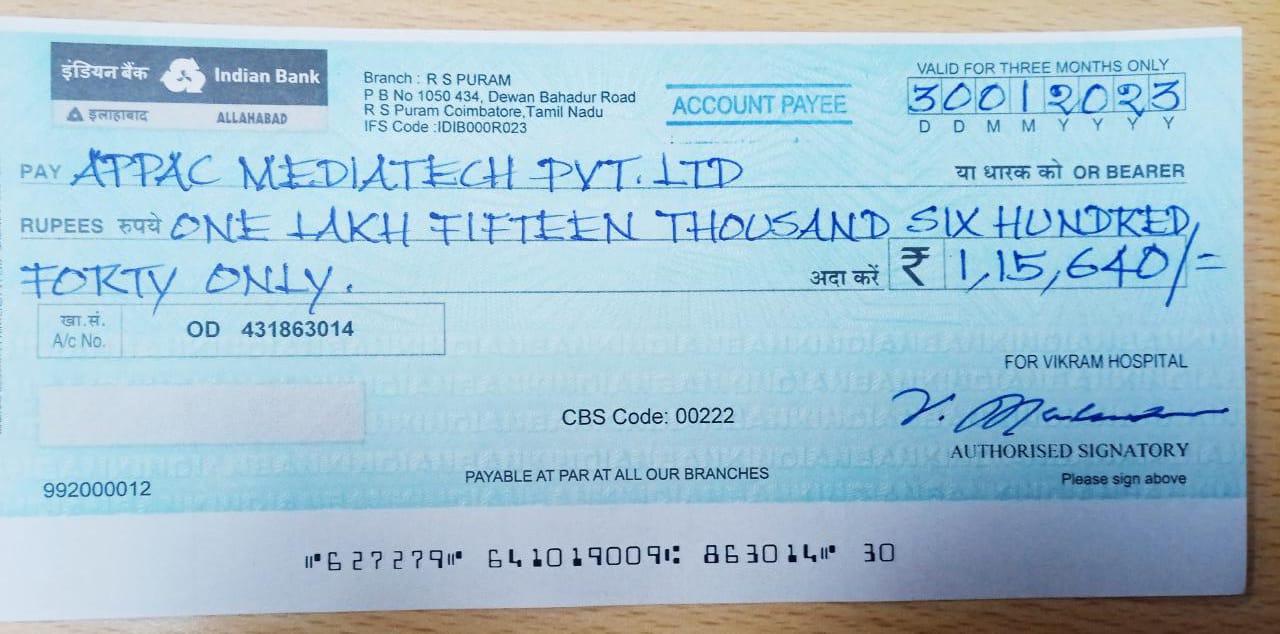 इंडियन बैंक Indian Bank
इलाहाबाद ALLAHABAD
Branch : R S PURAM
P B No 1050 434, Dewan Bahadur Road
R S Puram Coimbatore,Tamil Nadu
IFS Code :IDIB000R023
ACCOUNT PAYEE
VALID FOR THREE MONTHS ONLY
30012023
D D M M Y Y Y Y
PAY APPAC MEDIATECH PVT. LTD या धारक को OR BEARER
RUPEES रुपये ONE LAKH FIFTEEN THOUSAND SIX HUNDRED
FORTY ONLY. अदा करें ₹ 1,15,640/=
खा.सं.
A/c No. OD 431863014
FOR VIKRAM HOSPITAL
CBS Code: 00222
AUTHORISED SIGNATORY
Please sign above
PAYABLE AT PAR AT ALL OUR BRANCHES
992000012
⑈627279⑈ 641019009⑆ 863014⑈ 30